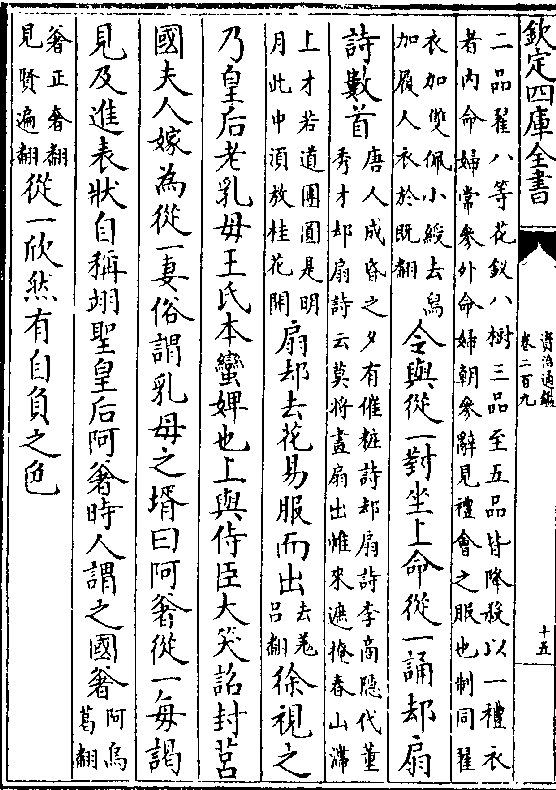 欽定四庫全書
資治通鑑
卷二百九
十五
二品翟八等花釵八樹三品至五品皆降殺以一禮衣
者內命婦常參外命婦朝參辭見禮會之服也制同翟
衣加雙佩小綬去舄
加履人衣於既翻
令與從一對坐上命從一誦却扇
詩數首
唐人成昏之夕有催粧詩却扇詩李商隱代董
秀才却扇詩云莫將畫扇出帷來遮掩春山滯
上才若道團圓是明
月此中須放桂花開
扇却去花易服而出
去羌
吕翻
徐視之
乃皇后老乳母王氏本蠻婢也上與侍臣大笑詔封莒
國夫人嫁為從一妻俗謂乳母之壻曰阿㸙從一每謁
見及進表狀自稱翊聖皇后阿㸙時人謂之國㸙
阿烏
葛翻
㸙正奢翻
見賢遍翻
從一欣然有自負之色